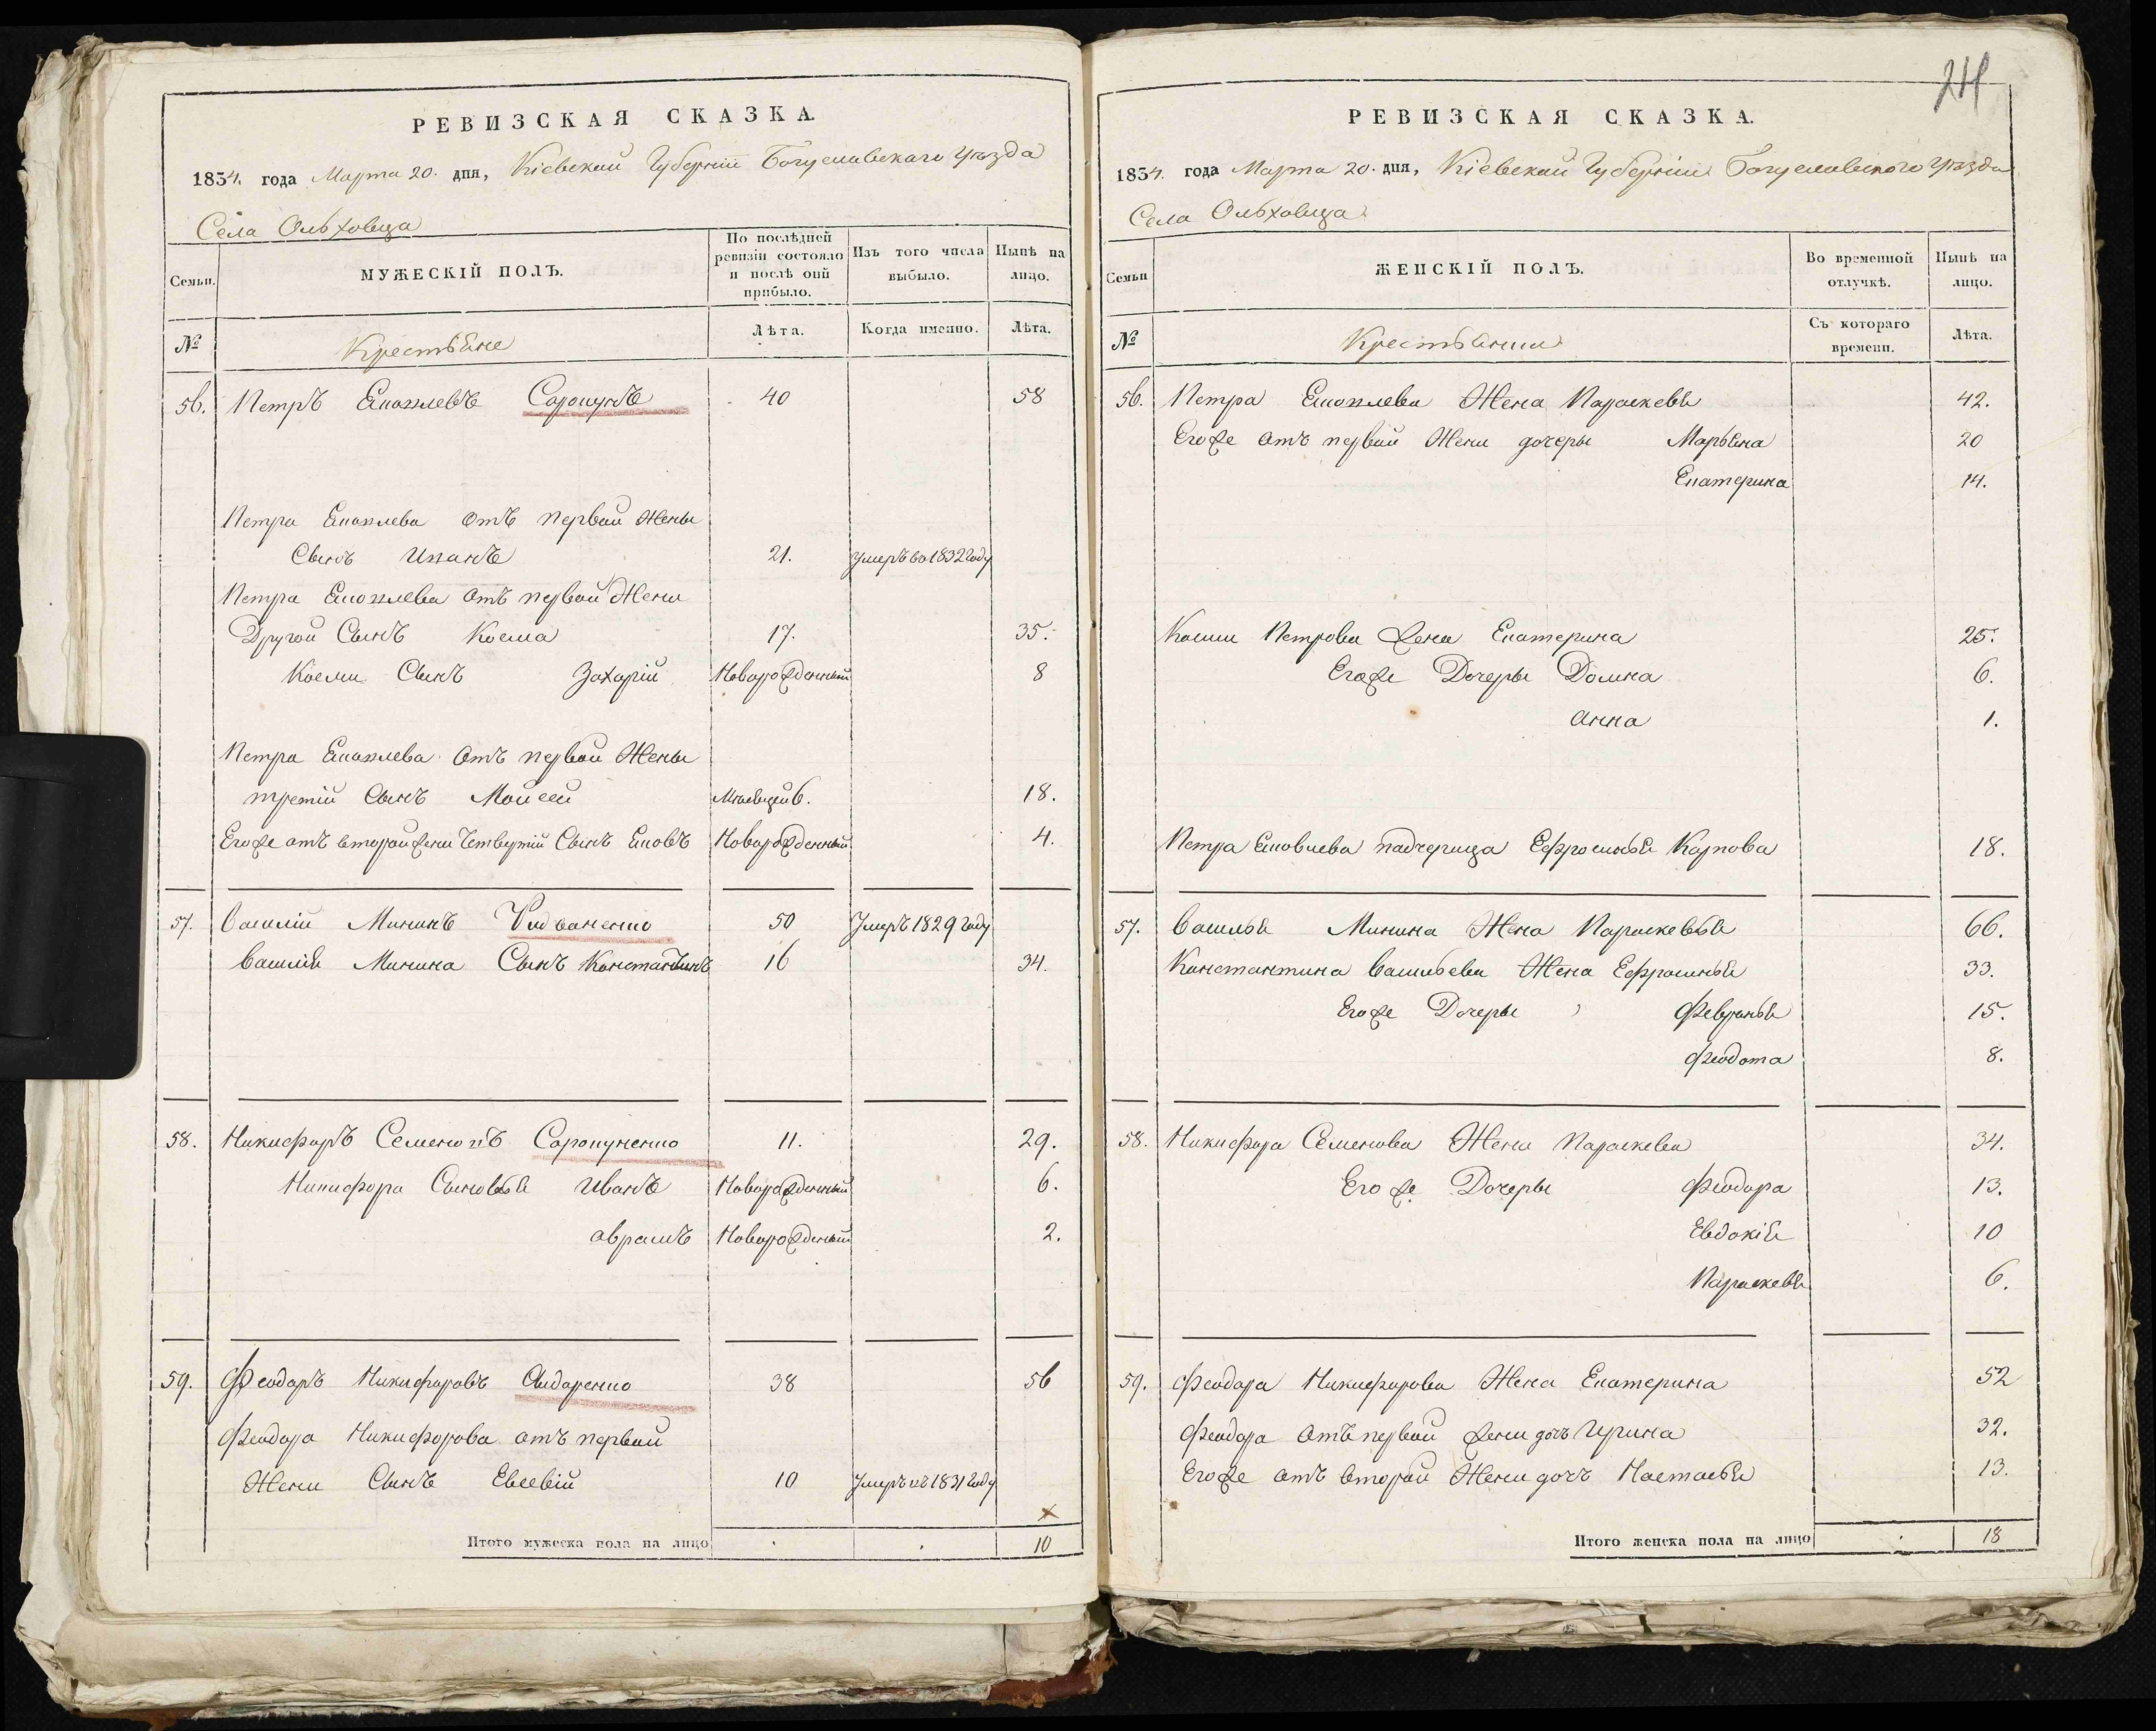 РЕВИЗСКАЯ СКАЗКА.
1834. года Марта 20. дня, Кіевской Губерніи Богуславскаго уѣзда
Села Ольховца
Семьи.
МУЖЕСКІЙ ПОЛЪ.
По послѣдней ревизіи состояло и послѣ оной прибыло.
Изъ того числа выбыло.
Нынѣ на лицо.
№
Крестьяне
Лѣта.
Когда именно.
Лѣта.
56. Петръ Яковлевъ Сорокунъ 40 58
Петра Яковлева отъ первой Жены
Сынъ Иванъ 21. умеръ во 1832 году
Петра Яковлева отъ первой Жени
Другой Сынъ Косма 17. 35.
Косми Сынъ Захарій Новорожденный 8
Петра Яковлева отъ первой Жены
третій Сынъ Мойсей 18.
Его же отъ второй жени Четвертій Сынъ Яковъ Новорожденный 4.
57. Василій Мининъ 50 Умеръ 1829 году
Василія Минина Сынъ Константинъ 16 34.
58. Никифоръ Семеновъ Сорокуненко 11. 29.
Никифора Сыновья Иванъ Новорожденный 6.
аврамъ Новорожденый 2.
59. Феодоръ Никифоровъ Сидоренко 38 56
Феодора Никифорова отъ первой
Жени Сынъ Евсевій 10 Умеръ въ 1831 году
Итого мужеска пола на лицо 10
214
РЕВИЗСКАЯ СКАЗКА.
1834. года Марта 20. дня, Кіевской Губерніи Богуславского уѣзда
Села Ольховца
Семьи
ЖЕНСКІЙ ПОЛЪ.
Во временной отлучкѣ.
Нынѣ на лицо.
№
Крестьянки
Съ котораго времени.
Лѣта.
56. Петра Яковлева Жена Параскева 42.
Его же отъ первой Жени дочеры Марьяна 20
Екатерина 14.
Косми Петрова жена Екатерина 25.
Его же Дочеры Домна 6.
Анна 1.
Петра Яковлева падчерица Ефросинья Карпова 18.
57. Василья Минина Жена Параскевья 66.
Константина Васильева Жена Ефросинья 33.
Его же Дочеры Февронья 15.
Феодота 8.
58. Никифора Семенова Жена Параскева 34.
Его же Дочеры Феодора 13.
Евдокія 10
Параскева 6.
59. Феодора Никифорова Жена Екатерина 52
Феодора отъ первой жени дочъ Ирина 32.
Его же отъ второй Жени дочъ Настасья 13.
Итого женска пола на лицо 18